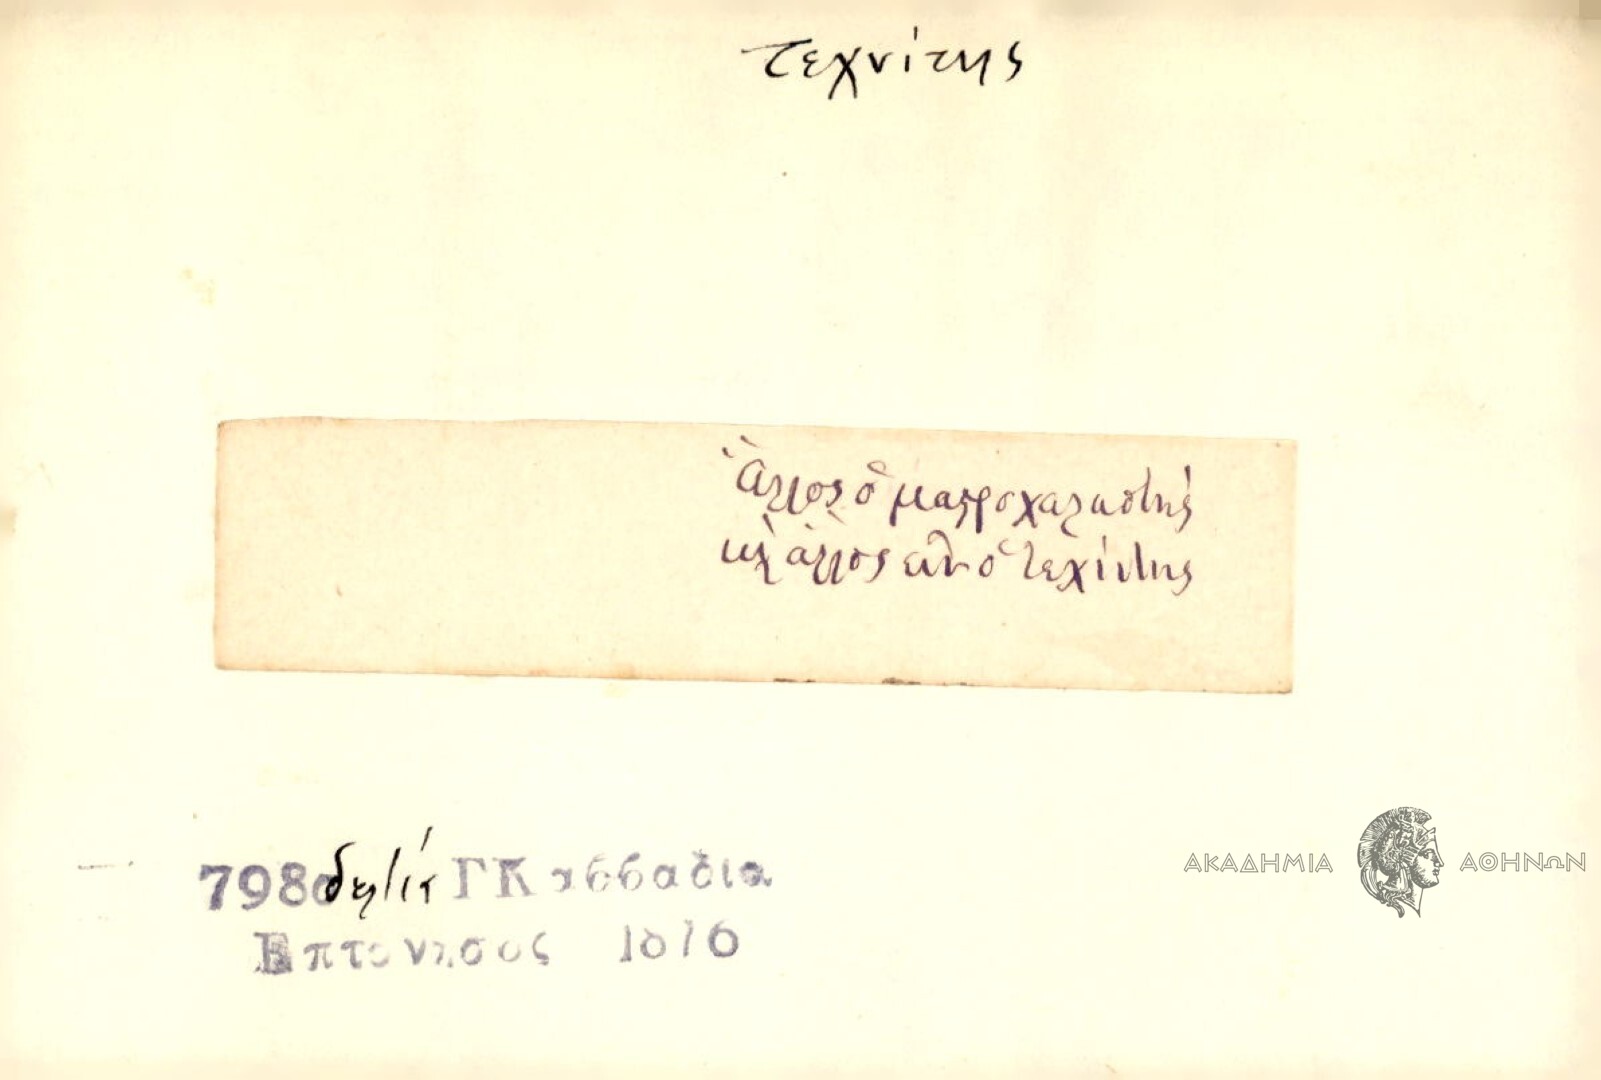 τεχνίτης
Ἄλλος ὁ μαστροχαλαστής
κι ἄλλος εἶν ὁ τεχίντης
798 δελτ Γ Κασσαδια
Επτανησος 1876
ΑΚΑΔΗΜΙΑ ΑΘΗΝΩΝ